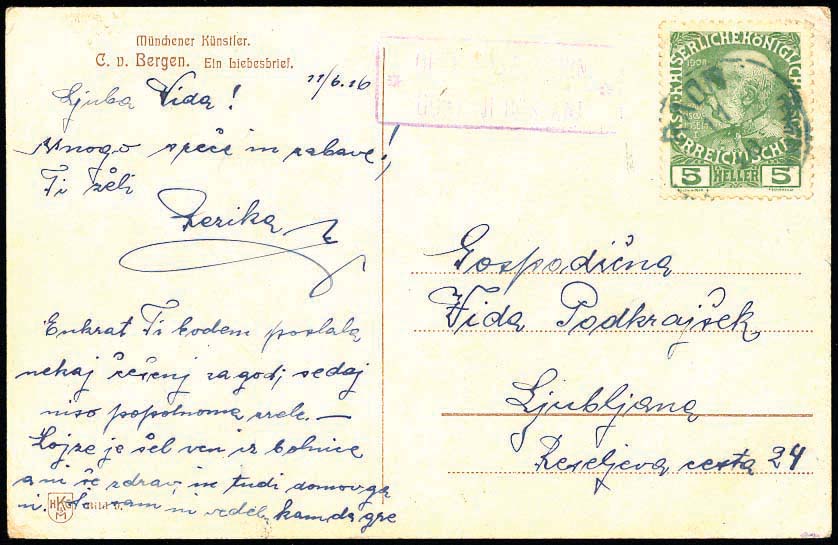 Münchener Künstler.
C. v. Bergen. Ein Liebesbrief.
11/6. 16
Ljuba Vida!
Mnogo sreče in zabave!
Ti želi
Rezika
Enkrat Ti bodem poslala
nekaj češenj za god, sedaj
niso popolnoma zrele. —
Lojze je šel ven iz bolnice
a ni še zdrav, in tudi domov ga
ni. in vedela kam da gre
HKAM
1908
KAISERLICHE KÖNIGLICHE
ÖSTERREICHISCHE
5 HELLER 5
Gospodična
Vida Podkrajšek
Ljubljana
Reseljeva cesta 24